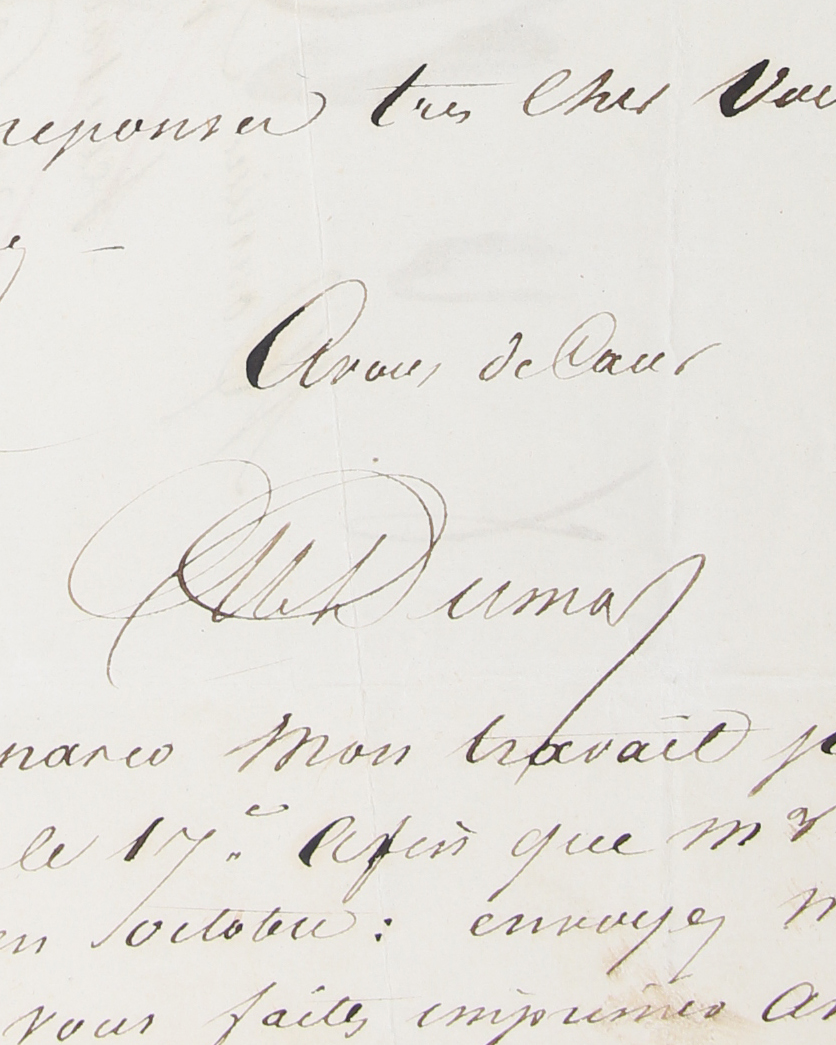 reponses tres cher vou
–
A vous de Coeur
Alex Dumas
narco Mon travail p
le 17.e afin que mr
en octobre : envoyez m
vous faites imprimer a